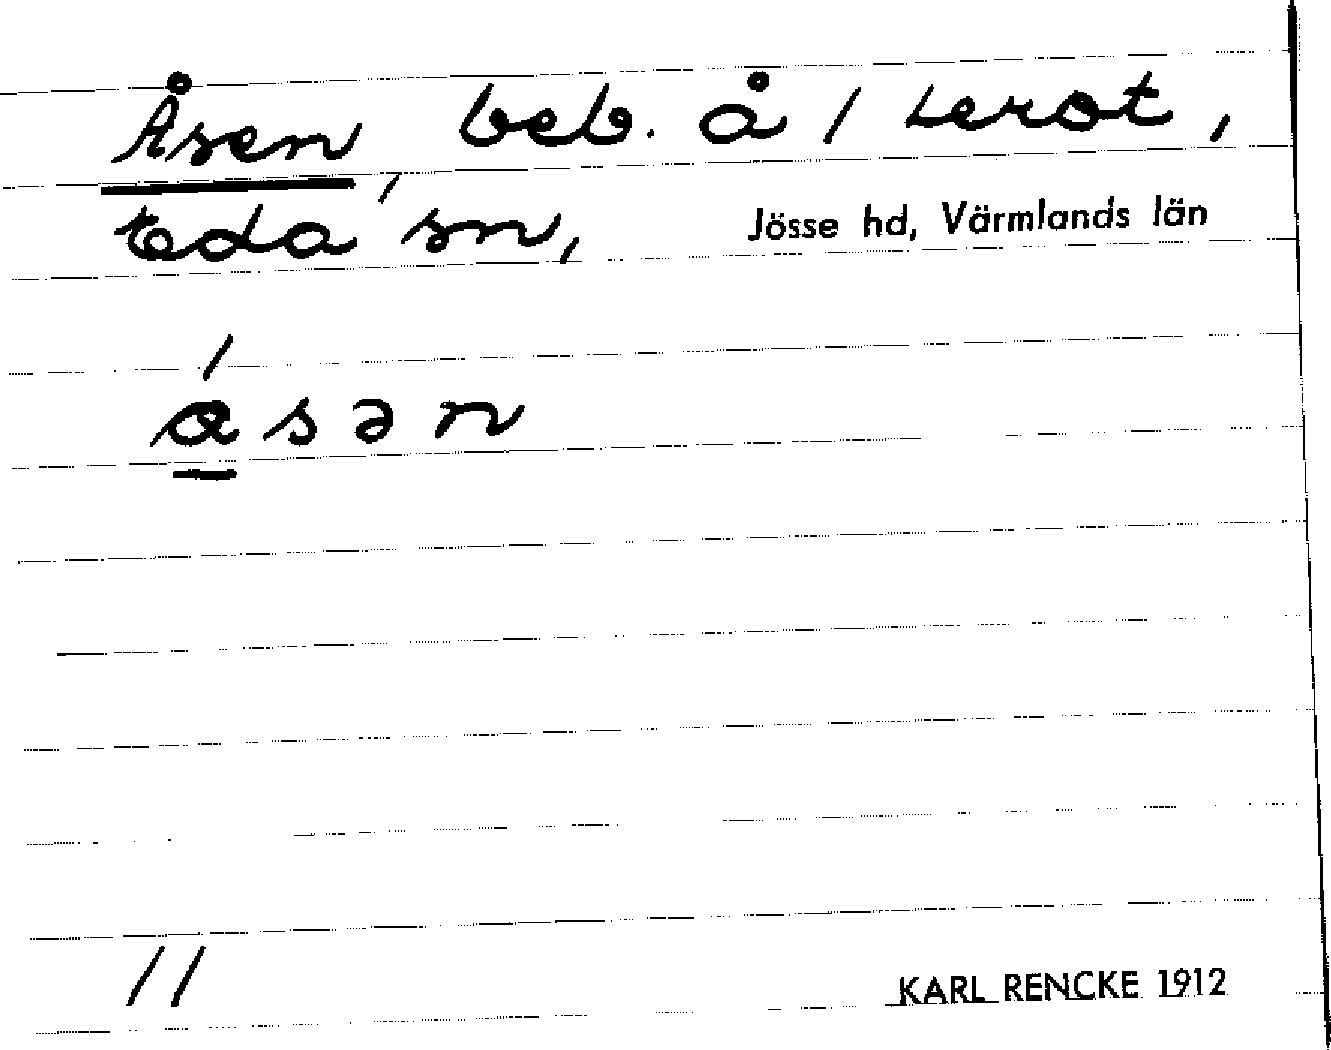 Åsen, beb. å 1 Lerot,
Eda sn, Jösse hd, Värmlands län
åsən
11
KARL RENCKE 1912